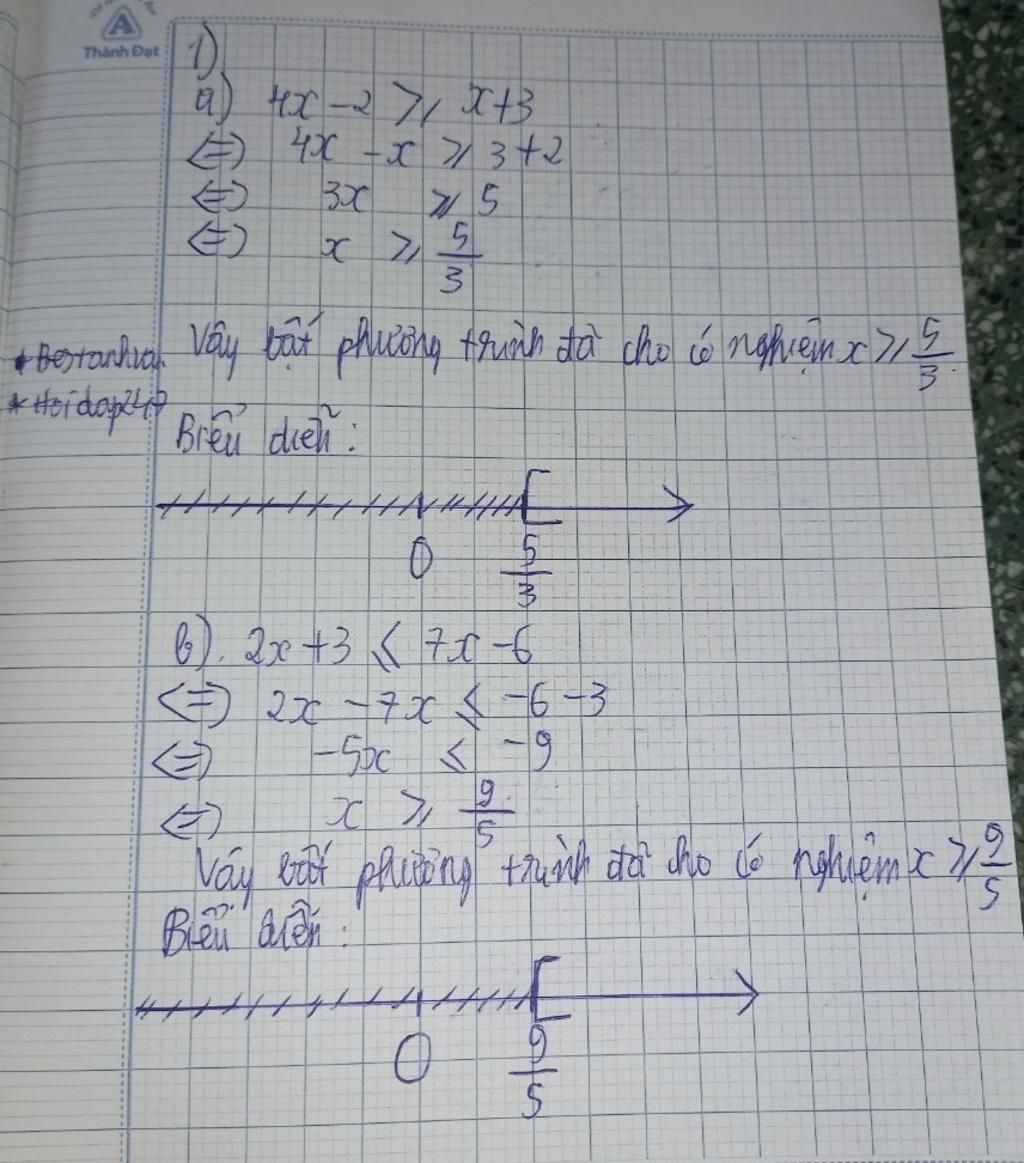 Thành Đạt
1)
a) 4x - 2 ⩾ x + 3
<=> 4x - x ⩾ 3 + 2
<=> 3x ⩾ 5
<=> x ⩾ 5/3
Vậy bất phương trình đã cho có nghiệm x ⩾ 5/3
Biểu diễn:
0 5/3
b). 2x + 3 ⩽ 7x - 6
<=> 2x - 7x ⩽ -6 - 3
<=> -5x ⩽ -9
<=> x ⩾ 9/5
Vậy bất phương trình đã cho có nghiệm x ⩾ 9/5
Biểu diễn:
0 9/5